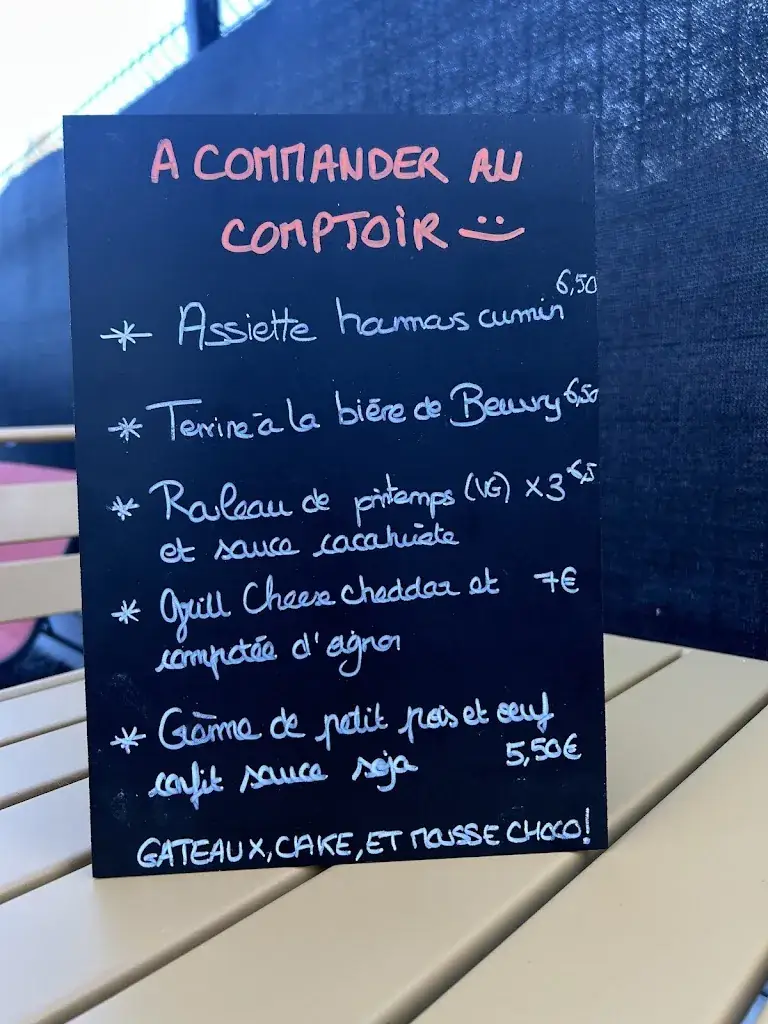 A COMMANDER AU
COMPTOIR
* Assiette houmous cumin 6,50
* Terrine à la bière de Beuvry 6,50
* Rouleau de printemps (VG) x3
et sauce cacahuète
* Grill Cheese cheddar et 7€
compotée d'oignon
* Crème de petit pois et œuf
confit sauce soja 5,50€
GATEAUX, CAKE, ET MOUSSE CHOCO!